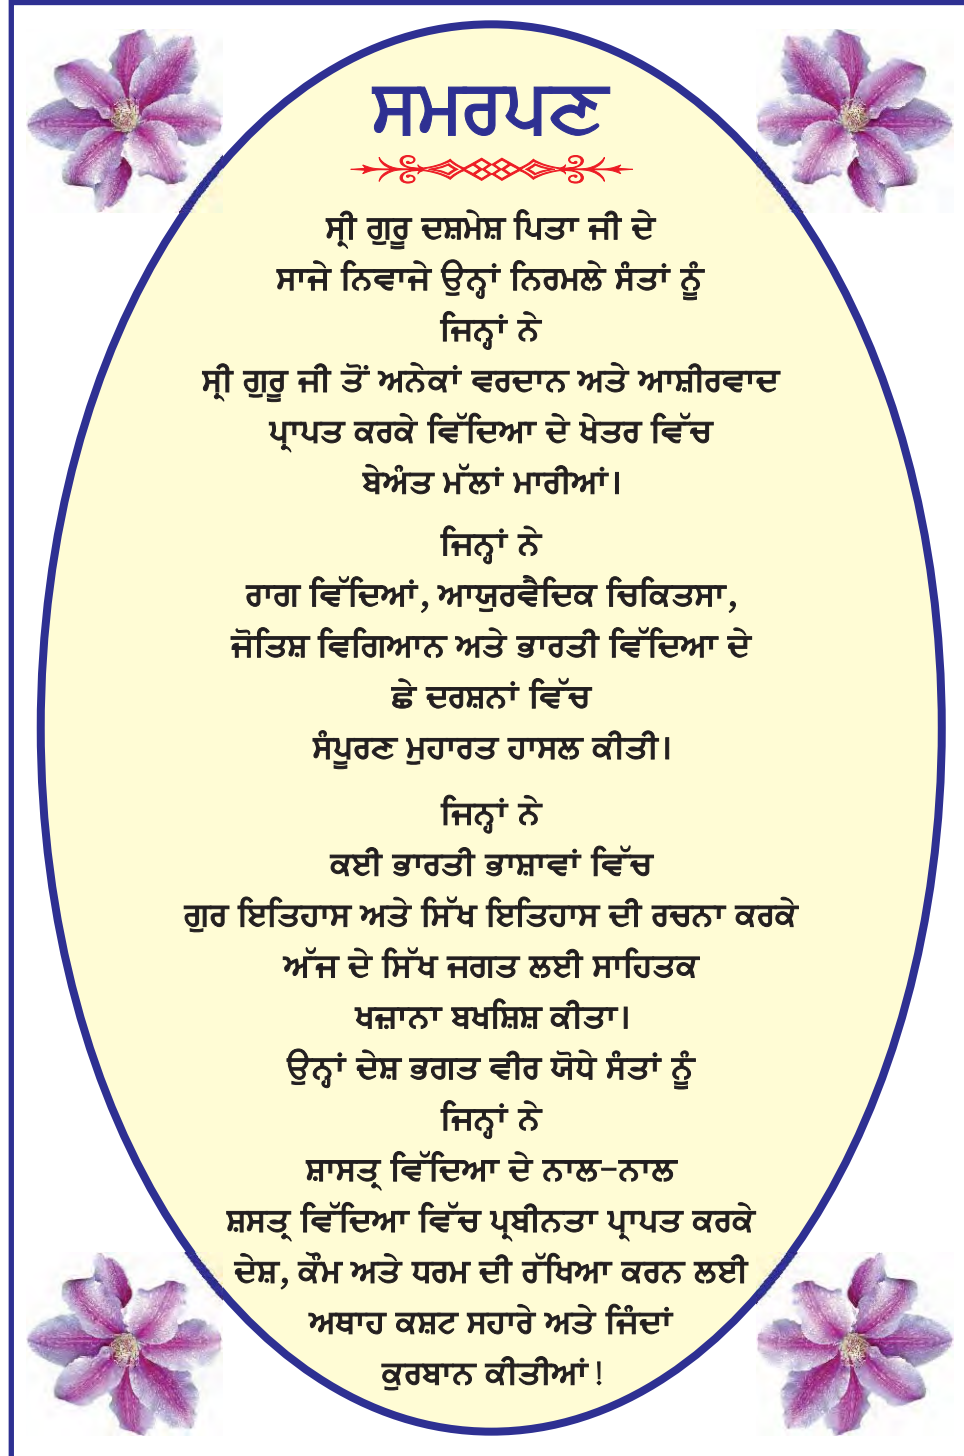 ਸਮਰਪਣ
ਸ੍ਰੀ ਗੁਰੂ ਦਸ਼ਮੇਸ਼ ਪਿਤਾ ਜੀ ਦੇ
ਸਾਜੇ ਨਿਵਾਜੇ ਉਨ੍ਹਾਂ ਨਿਰਮਲੇ ਸੰਤਾਂ ਨੂੰ
ਜਿਨ੍ਹਾਂ ਨੇ
ਸ੍ਰੀ ਗੁਰੂ ਜੀ ਤੋਂ ਅਨੇਕਾਂ ਵਰਦਾਨ ਅਤੇ ਆਸ਼ੀਰਵਾਦ
ਪ੍ਰਾਪਤ ਕਰਕੇ ਵਿੱਦਿਆ ਦੇ ਖੇਤਰ ਵਿੱਚ
ਬੇਅੰਤ ਮੱਲਾਂ ਮਾਰੀਆਂ।
ਜਿਨ੍ਹਾਂ ਨੇ
ਰਾਗ ਵਿੱਦਿਆਂ, ਆਯੁਰਵੈਦਿਕ ਚਿਕਿਤਸਾ,
ਜੋਤਿਸ਼ ਵਿਗਿਆਨ ਅਤੇ ਭਾਰਤੀ ਵਿੱਦਿਆ ਦੇ
ਛੇ ਦਰਸ਼ਨਾਂ ਵਿੱਚ
ਸੰਪੂਰਣ ਮੁਹਾਰਤ ਹਾਸਲ ਕੀਤੀ।
ਜਿਨ੍ਹਾਂ ਨੇ
ਕਈ ਭਾਰਤੀ ਭਾਸ਼ਾਵਾਂ ਵਿੱਚ
ਗੁਰ ਇਤਿਹਾਸ ਅਤੇ ਸਿੱਖ ਇਤਿਹਾਸ ਦੀ ਰਚਨਾ ਕਰਕੇ
ਅੱਜ ਦੇ ਸਿੱਖ ਜਗਤ ਲਈ ਸਾਹਿਤਕ
ਖਜ਼ਾਨਾ ਬਖਸ਼ਿਸ਼ ਕੀਤਾ।
ਉਨ੍ਹਾਂ ਦੇਸ਼ ਭਗਤ ਵੀਰ ਯੋਧੇ ਸੰਤਾਂ ਨੂੰ
ਜਿਨ੍ਹਾਂ ਨੇ
ਸ਼ਾਸਤ੍ਰ ਵਿੱਦਿਆ ਦੇ ਨਾਲ-ਨਾਲ
ਸ਼ਸਤ੍ਰ ਵਿੱਦਿਆ ਵਿੱਚ ਪ੍ਰਬੀਨਤਾ ਪ੍ਰਾਪਤ ਕਰਕੇ
ਦੇਸ਼, ਕੌਮ ਅਤੇ ਧਰਮ ਦੀ ਰੱਖਿਆ ਕਰਨ ਲਈ
ਅਥਾਹ ਕਸ਼ਟ ਸਹਾਰੇ ਅਤੇ ਜਿੰਦਾਂ
ਕੁਰਬਾਨ ਕੀਤੀਆਂ!